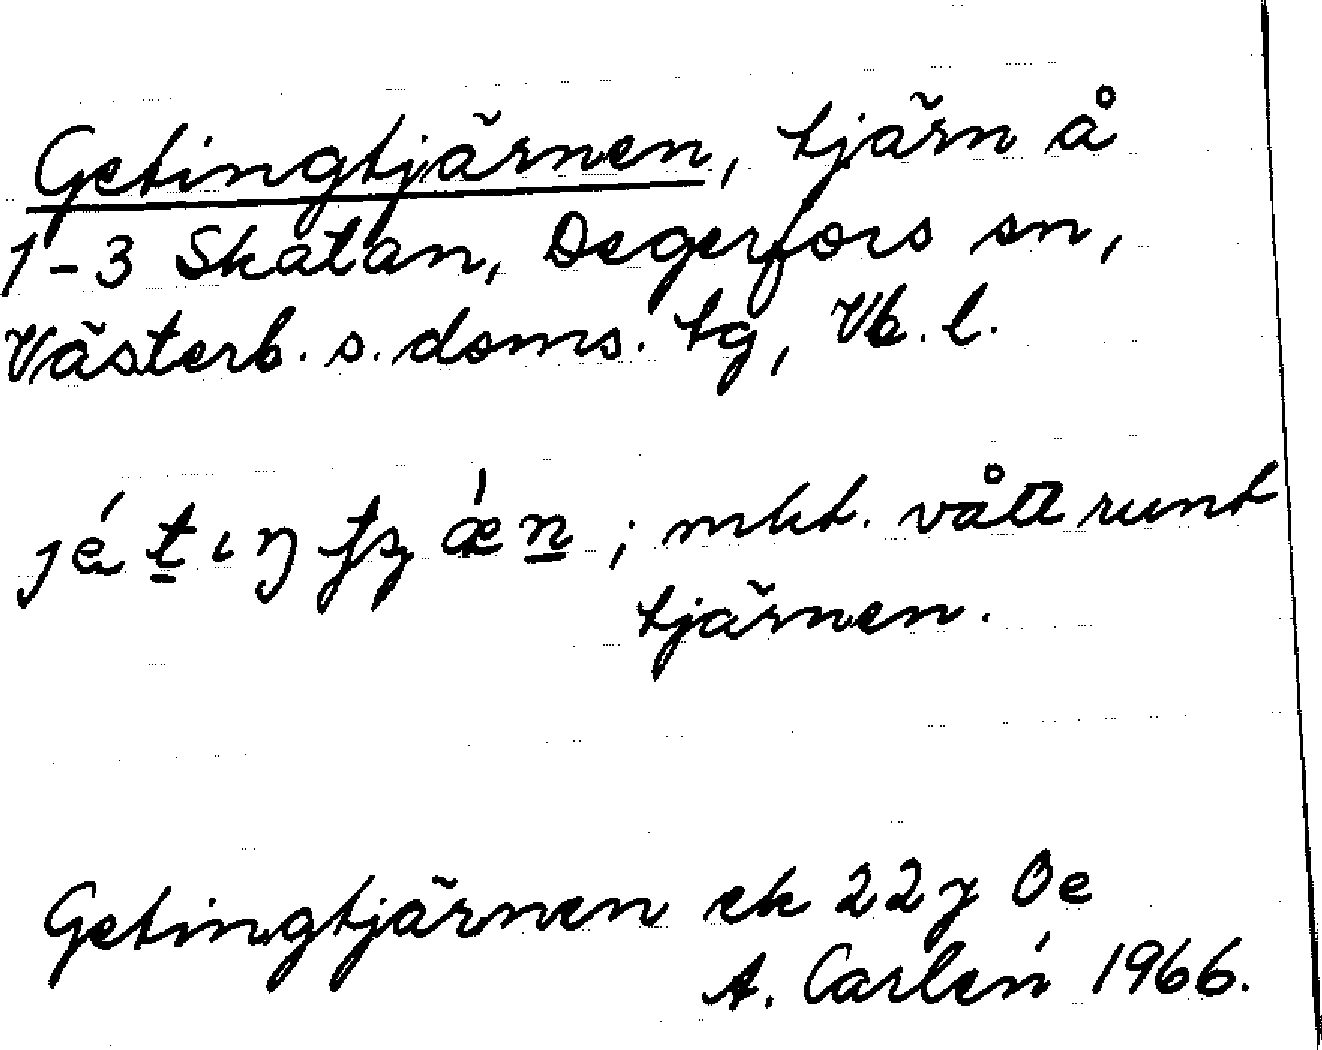 Getingtjärnen, tjärn å
1-3 Skatan, Degerfors sn,
Västerb. s. doms. tg, Vb. l.
; mkt. vått runt
tjärnen.
Getingtjärnen ek 22 j 0e
A. Carlén 1966.